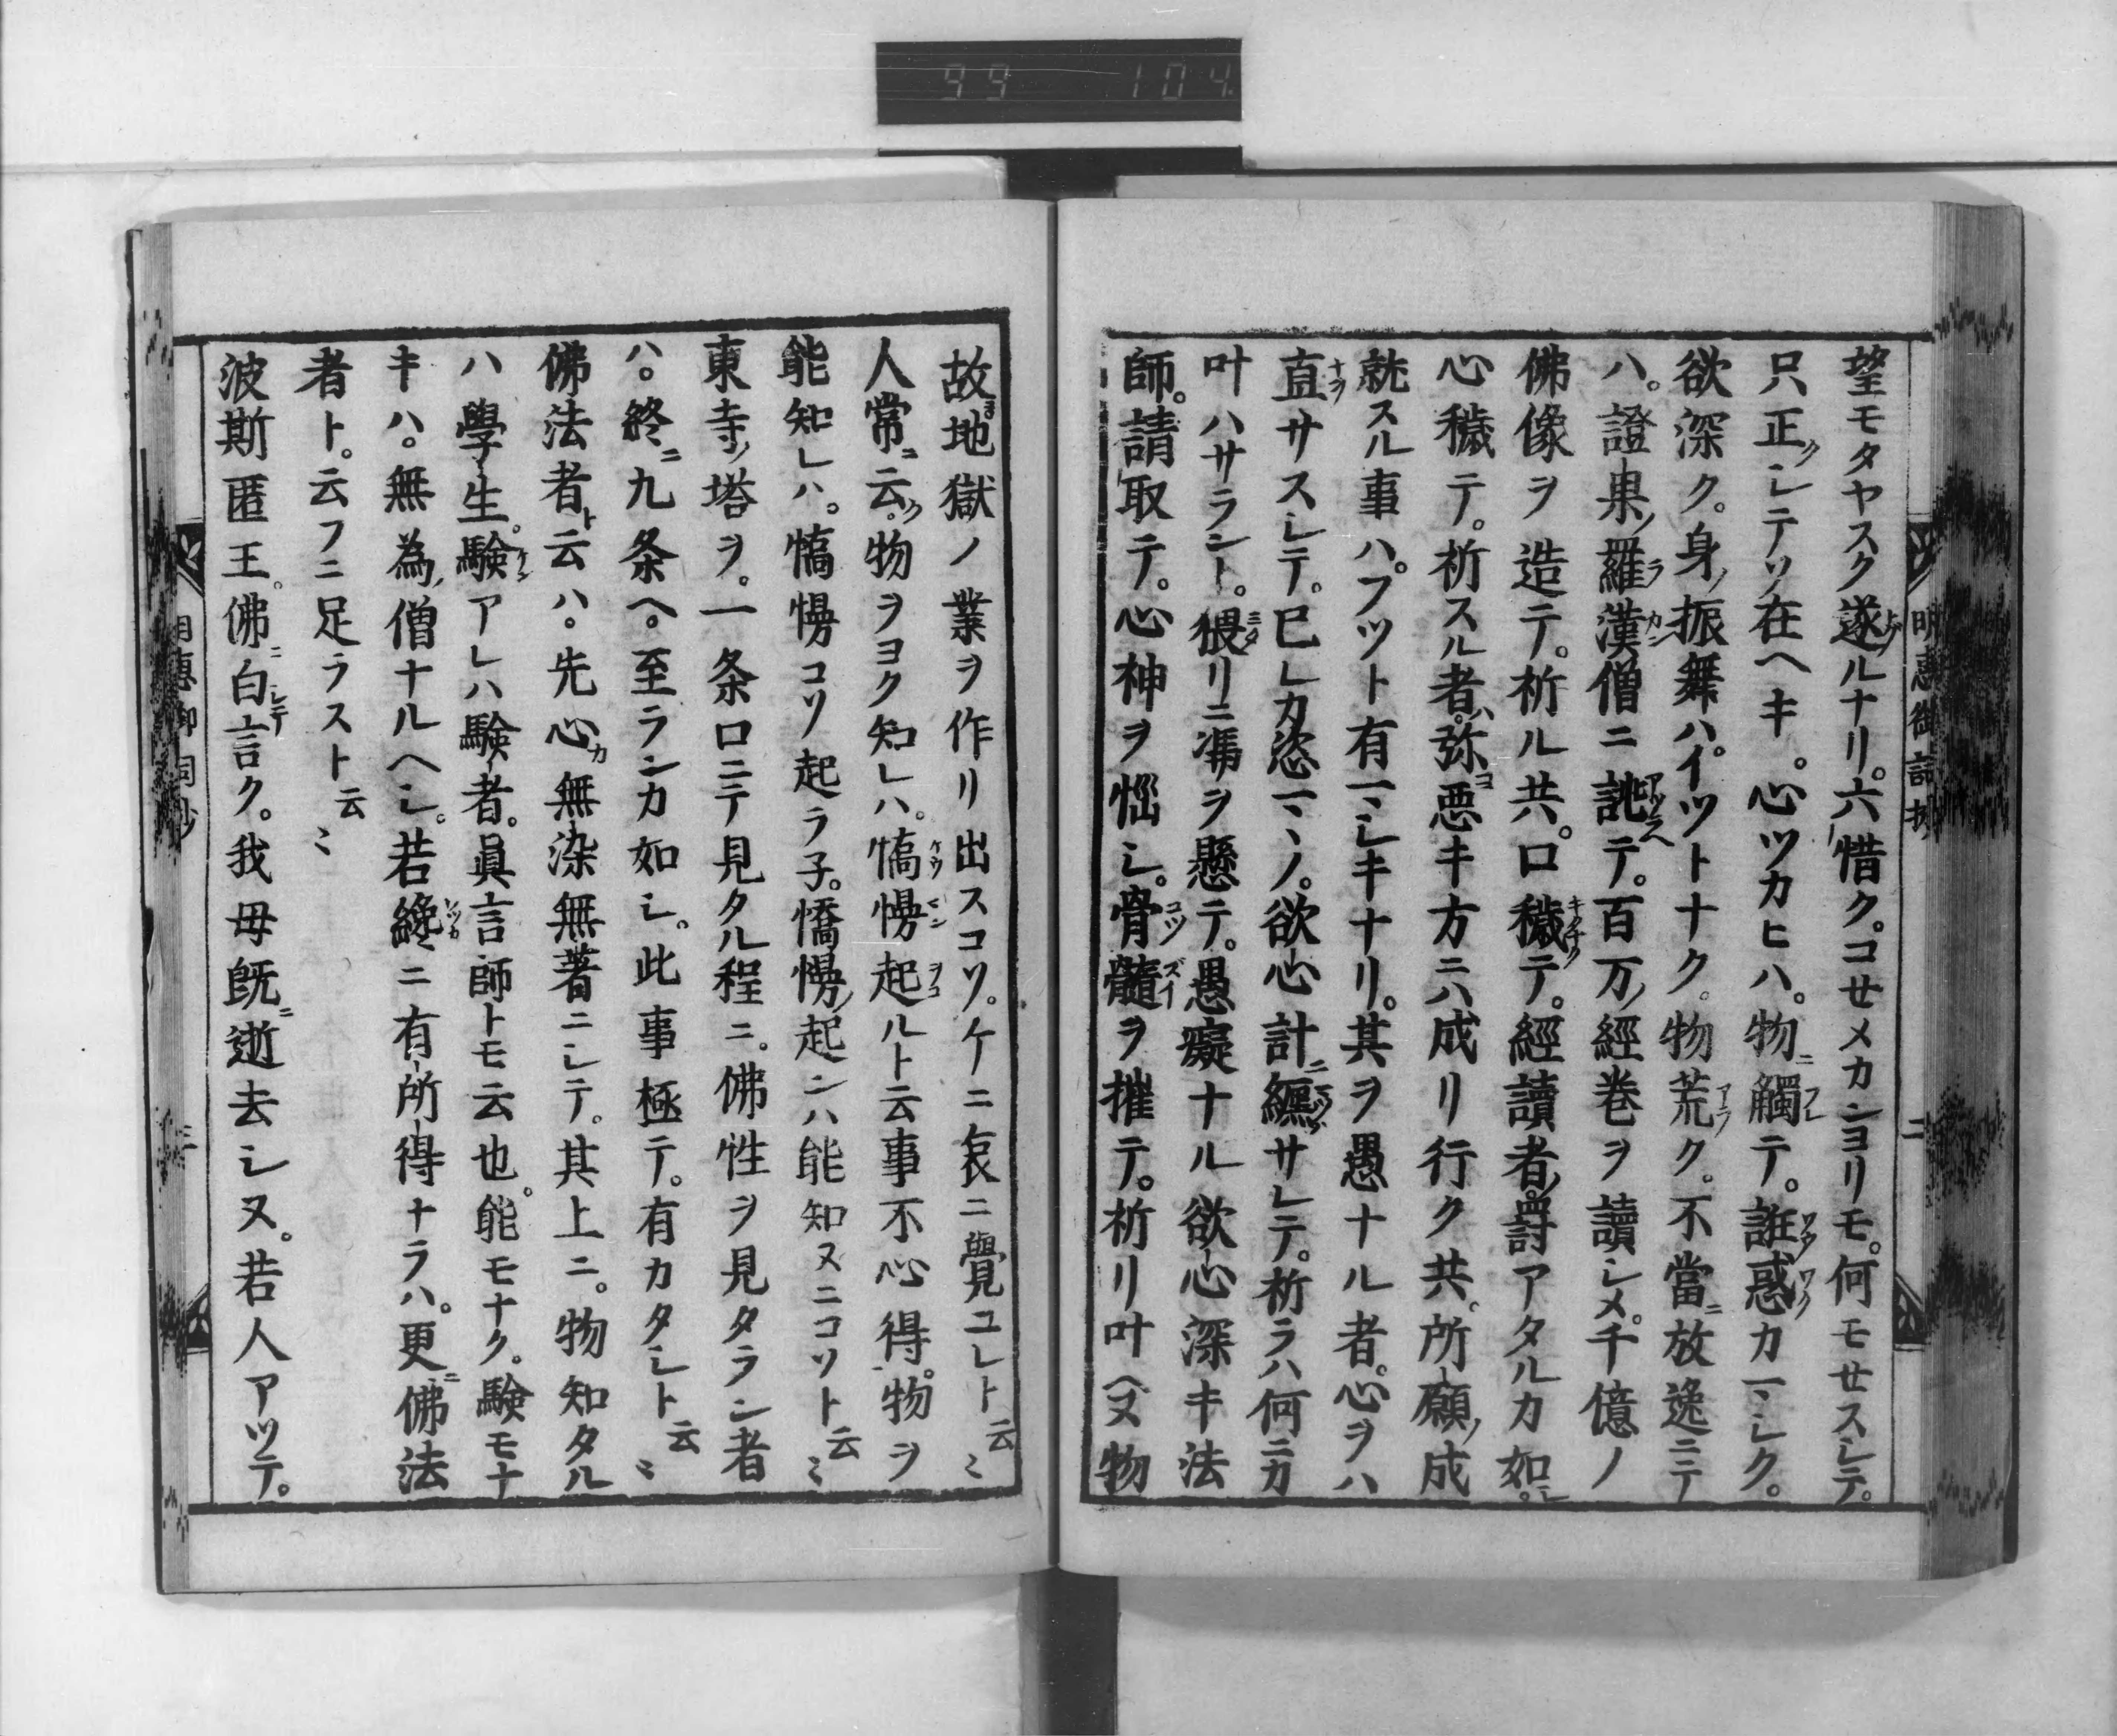 99 104
明惠御詞抄 二
望モタヤスク遂ルナリ。六惜ク。コセメカンヨリモ。何モセスレテ。
只正クレテソ在ヘキ。心ツカヒハ。物ニ觸テ。誑惑カマシク。
欲深ク。身ノ振舞ハ。イツトナク。物荒ク。不當ニ放逸ニテ
ハ。證果ノ羅漢僧ニ誂テ。百万ノ經巻ヲ讀シメ。千億ノ
佛像ヲ造テ。祈ル共。口穢テ。經讀者ノ。罸アタルカ如シ。
心穢テ。祈スル者ハ。弥悪キ方ニハ成リ行ク共。所願ノ成
就スル事ハ。フツト有マシキナリ。其ヲ愚ナル者。心ヲハ
直サスシテ。已レカ恣マヽノ。欲心計ニ纏サレテ。祈ラハ何ニカ
叶ハサラント。猥リニ馮ヲ懸テ。愚癡ナル欲心深キ法
師。請取テ。心神ヲ悩シ。骨髓ヲ摧テ。祈リ叶ヘヌ物
故。地獄ノ業ヲ作リ出スコソ。ケニ哀ニ覺ユレト云〻
人常ニ云ク。物ヲヨク知レハ。憍慢起ルト云事不心得。物ヲ
能知レハ。憍慢コソ起ラ子。憍慢ノ起ンハ能知ヌニコソト云〻
東寺ノ塔ヲ。一条口ニテ見タル程ニ。佛性ヲ見タラン者
ハ。終ニ九条ヘ。至ランカ如シ。此事極テ。有カタシト云〻
佛法者ト云ハ。先心カ無染無著ニシテ。其上ニ。物知タル
ハ學生。驗アレハ驗者。眞言師トモ云也。能モナク。驗モナ
キハ。無為ノ僧ナルヘシ。若纔ニ有所得ナラハ。更ニ佛法
者ト。云フニ足ラスト云〻
波斯匿王。佛ニ白シテ言ク。我母既ニ逝去シヌ。若人アツテ。
明惠御詞抄 三